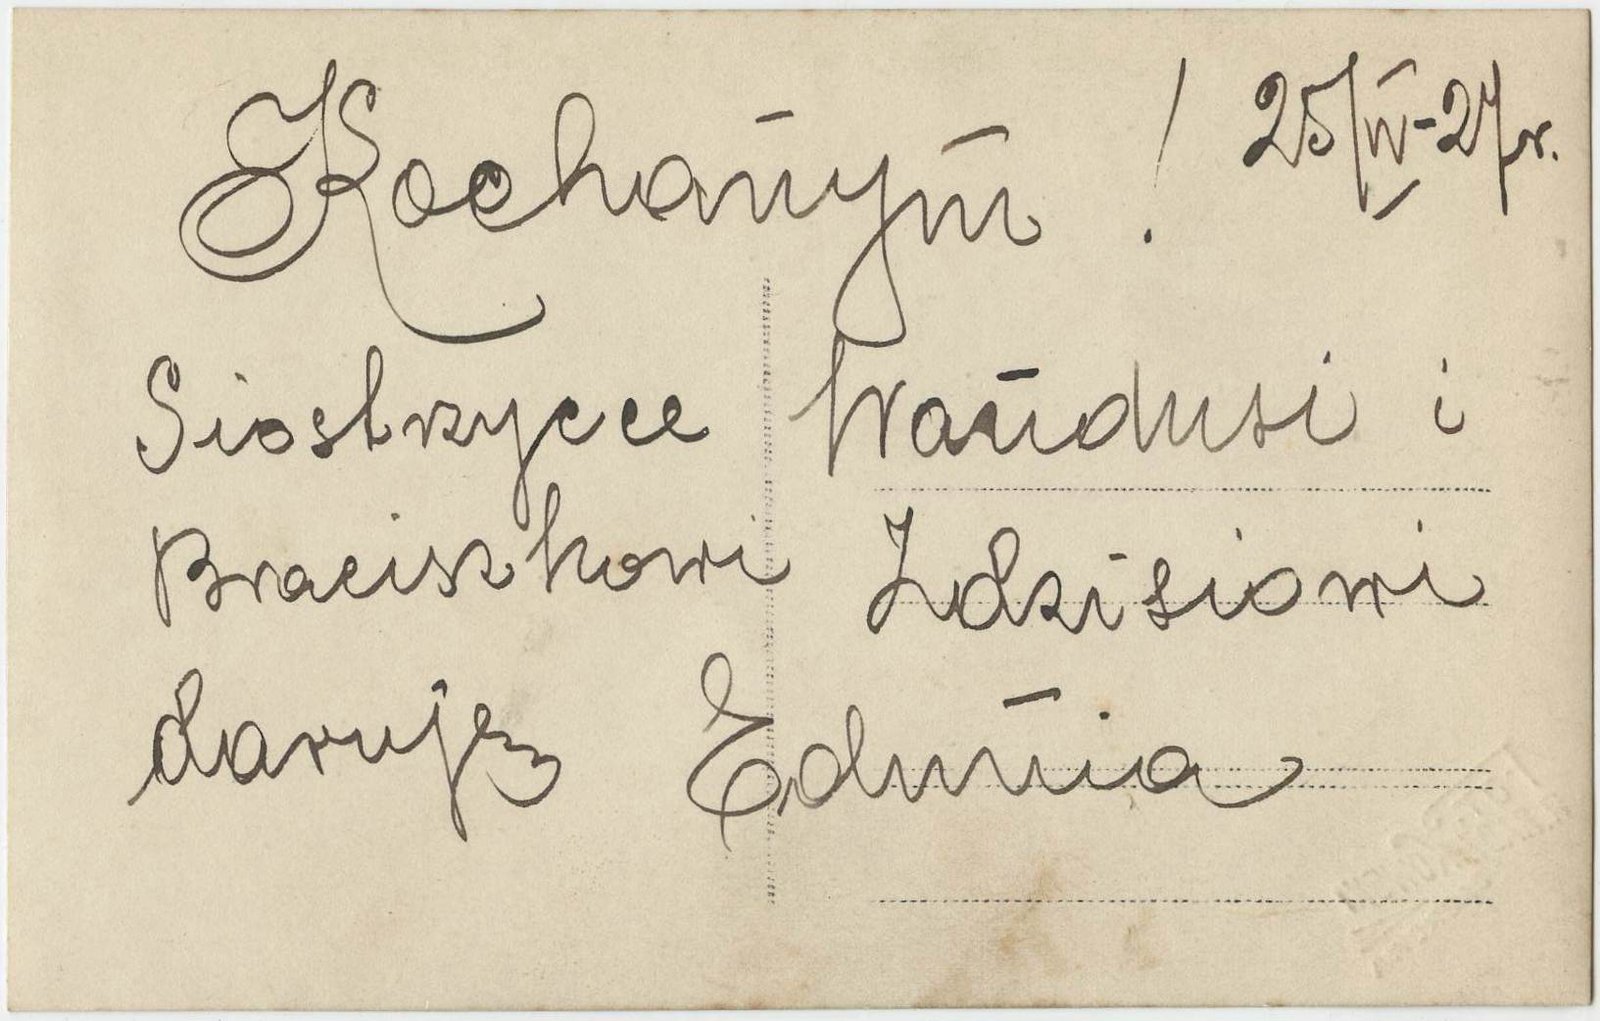 Kochanym ! 25/IV-27 r.
Siostrzyce Wandusi i
Braciszkowi Zdzisiowi
daruję Edunia